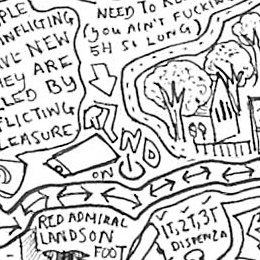 PLE
INFLICTING
VE NEW
HEY ARE
LLED BY
FLICTING
LEASURE
NEED TO
(YOU AIN'T FUCKIN
EH SI LONG)
AND
ON
RED ADMIRAL
LANDS ON
FOOT
1T, 2T, 3T
DISPENZA